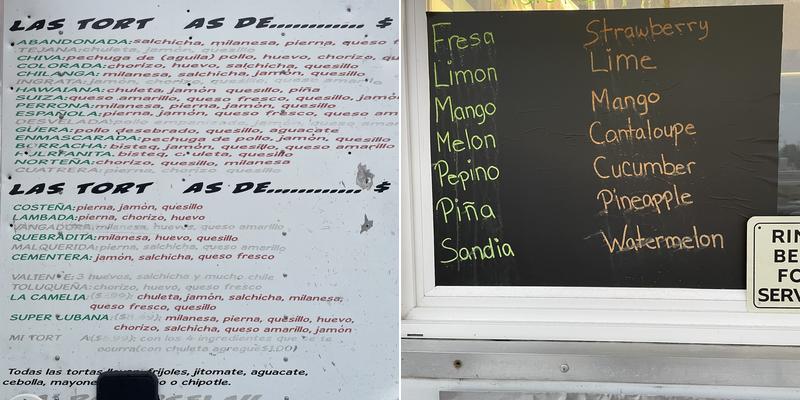 LAS TORT AS DE............ $
ABANDONADA: salchicha, milanesa, pierna, queso f
TEJANA: chuleta, jamón, quesillo
CHIVA: pechuga de (aguila) pollo, huevo, chorizo, qu
COLORADA: chorizo, huevo, salchicha, quesillo
CHILANGA: milanesa, salchicha, jamón, quesillo
INGRATA: jamón, chorizo, quesillo, queso amarillo
HAWAIANA: chuleta, jamón quesillo, piña
SUIZA: queso amarillo, queso fresco, quesillo, jamó
PERRONA: milanesa, pierna, jamón, quesillo
ESPAÑOLA: pierna, jamón, queso fresco, queso am
DESVELADA: pollo empanizado, jamón, queso am
GÜERA: pollo desebrado, quesillo, aguacate
ENMASCARADA: pechuga de pollo, jamón, quesillo
BORRACHA: bisteq, jamón, quesillo, queso amarillo
P JLRFANITA, bisteq, c uleta, quesillo
NORTEÑA: chorizo, quesillo, milanesa
CUATRERA: pierna, chorizo, jamón
LAS TORT AS DE............ $
COSTEÑA: pierna, jamón, quesillo
LAMBADA: pierna, chorizo, huevo
VANGADORA: milanesa, huevos, queso amarillo
QUEBRADITA: milanesa, huevo, quesillo
MALQUERIDA: pierna, salchicha, queso amarillo
CEMENTERA: jamón, salchicha, queso fresco
VALIENTE: 3 huevos, salchicha y mucho chile
TOLUQUEÑA: chorizo, huevo, queso fresco
LA CAMELIA: chuleta, jamón, salchicha, milanesa,
queso fresco, quesillo
SUPER CUBANA: milanesa, pierna, quesillo, huevo,
chorizo, salchicha, queso amarillo, jamón
MI TORT A con los 4 ingredientes que se te
ocurra (con chuleta agregue $1.00)
Todas las tortas llevan frijoles, jitomate, aguacate,
cebolla, mayone o chipotle.
Fresa Strawberry
Limon Lime
Mango Mango
Melon Cantaloupe
Pepino Cucumber
Piña Pineapple
Sandia Watermelon
RIN
BE
FO
SERV